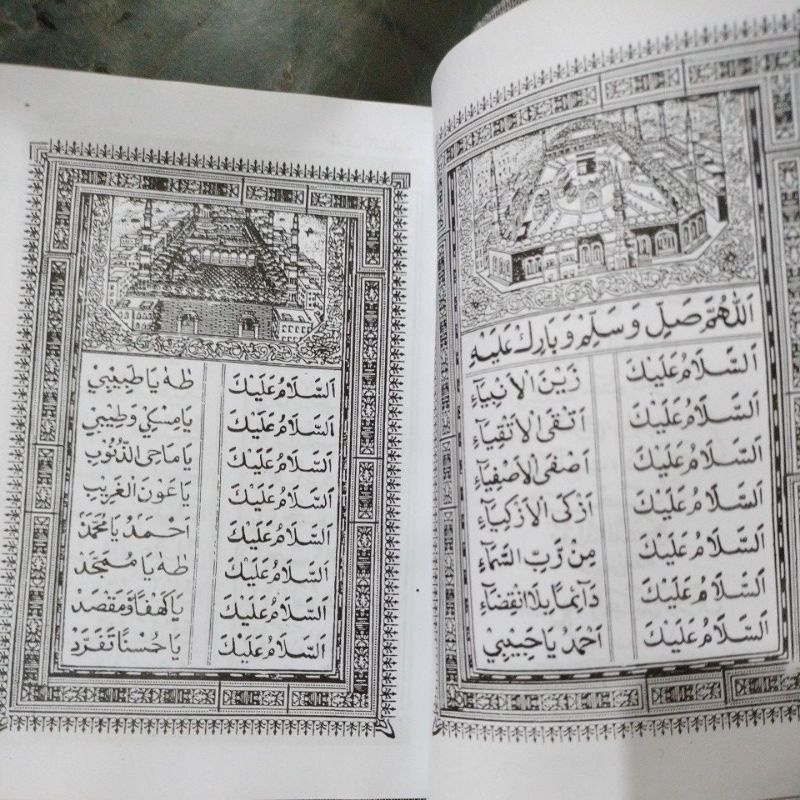 اَللّٰهُمَّ صَلِّ وَسَلِّمْ وَبَارِكْ عَلَيْهِ
اَلسَّلَامُ عَلَيْكَ زَيْنَ الْاَنْبِيَاءِ
اَلسَّلَامُ عَلَيْكَ اَتْقَى الْاَتْقِيَاءِ
اَلسَّلَامُ عَلَيْكَ اَصْفَى الْاَصْفِيَاءِ
اَلسَّلَامُ عَلَيْكَ اَزْكَى الْاَزْكِيَاءِ
اَلسَّلَامُ عَلَيْكَ مِنْ رَبِّ السَّمَاءِ
اَلسَّلَامُ عَلَيْكَ دَائِمًا بِلَا انْقِضَاءِ
اَلسَّلَامُ عَلَيْكَ اَحْمَدُ يَا حَبِيْبِي
اَلسَّلَامُ عَلَيْكَ طٰهٰ يَا طَبِيْبِي
اَلسَّلَامُ عَلَيْكَ يَا مِسْكِي وَطِيْبِي
اَلسَّلَامُ عَلَيْكَ يَا مَاحِى الذُّنُوْبِ
اَلسَّلَامُ عَلَيْكَ يَا عَوْنَ الْغَرِيْبِ
اَلسَّلَامُ عَلَيْكَ اَحْمَدُ يَا مُحَمَّدْ
اَلسَّلَامُ عَلَيْكَ طٰهٰ يَا مُمَجَّدْ
اَلسَّلَامُ عَلَيْكَ يَا كَهْفًا وَمَقْصَدْ
اَلسَّلَامُ عَلَيْكَ يَا حُسْنًا تَفَرَّدْ